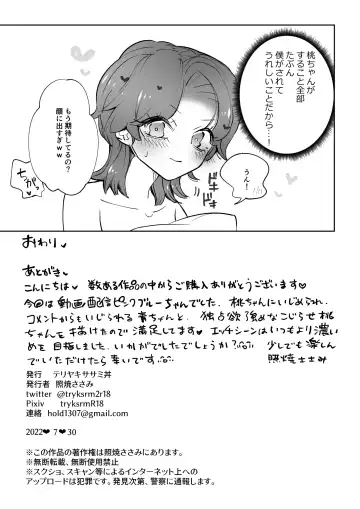 桃ちゃんが
すること全部
たぶん
僕がされて
うれしいこと
だから…!
うん!
もう期待してるの?
顔に出すぎww
ドキドキ
おわり
あとがき
こんにちは 数ある作品の中からご購入ありがとうございます
今回は動画配信ピンクブルーちゃんでした。桃ちゃんにいじめられ、
コメントからもいじられる青ちゃんと、独占欲強めなこじらせ桃
ちゃんを描けたので満足してます エッチシーンはいつもより濃い
めを目指しました。いかがでしたでしょうか?少しでも楽しん
でいただけたら幸いです 照焼ささみ
発行 テリヤキササミ丼
発行者 照焼ささみ
twitter @tryksrm2r18
Pixiv tryksrmR18
連絡 hold1307@gmail.com
2022❤7❤30
※この作品の著作権は照焼ささみにあります。
※無断転載、無断使用禁止
※スクショ、スキャン等によるインターネット上への
アップロードは犯罪です。発見次第、警察に通報します。